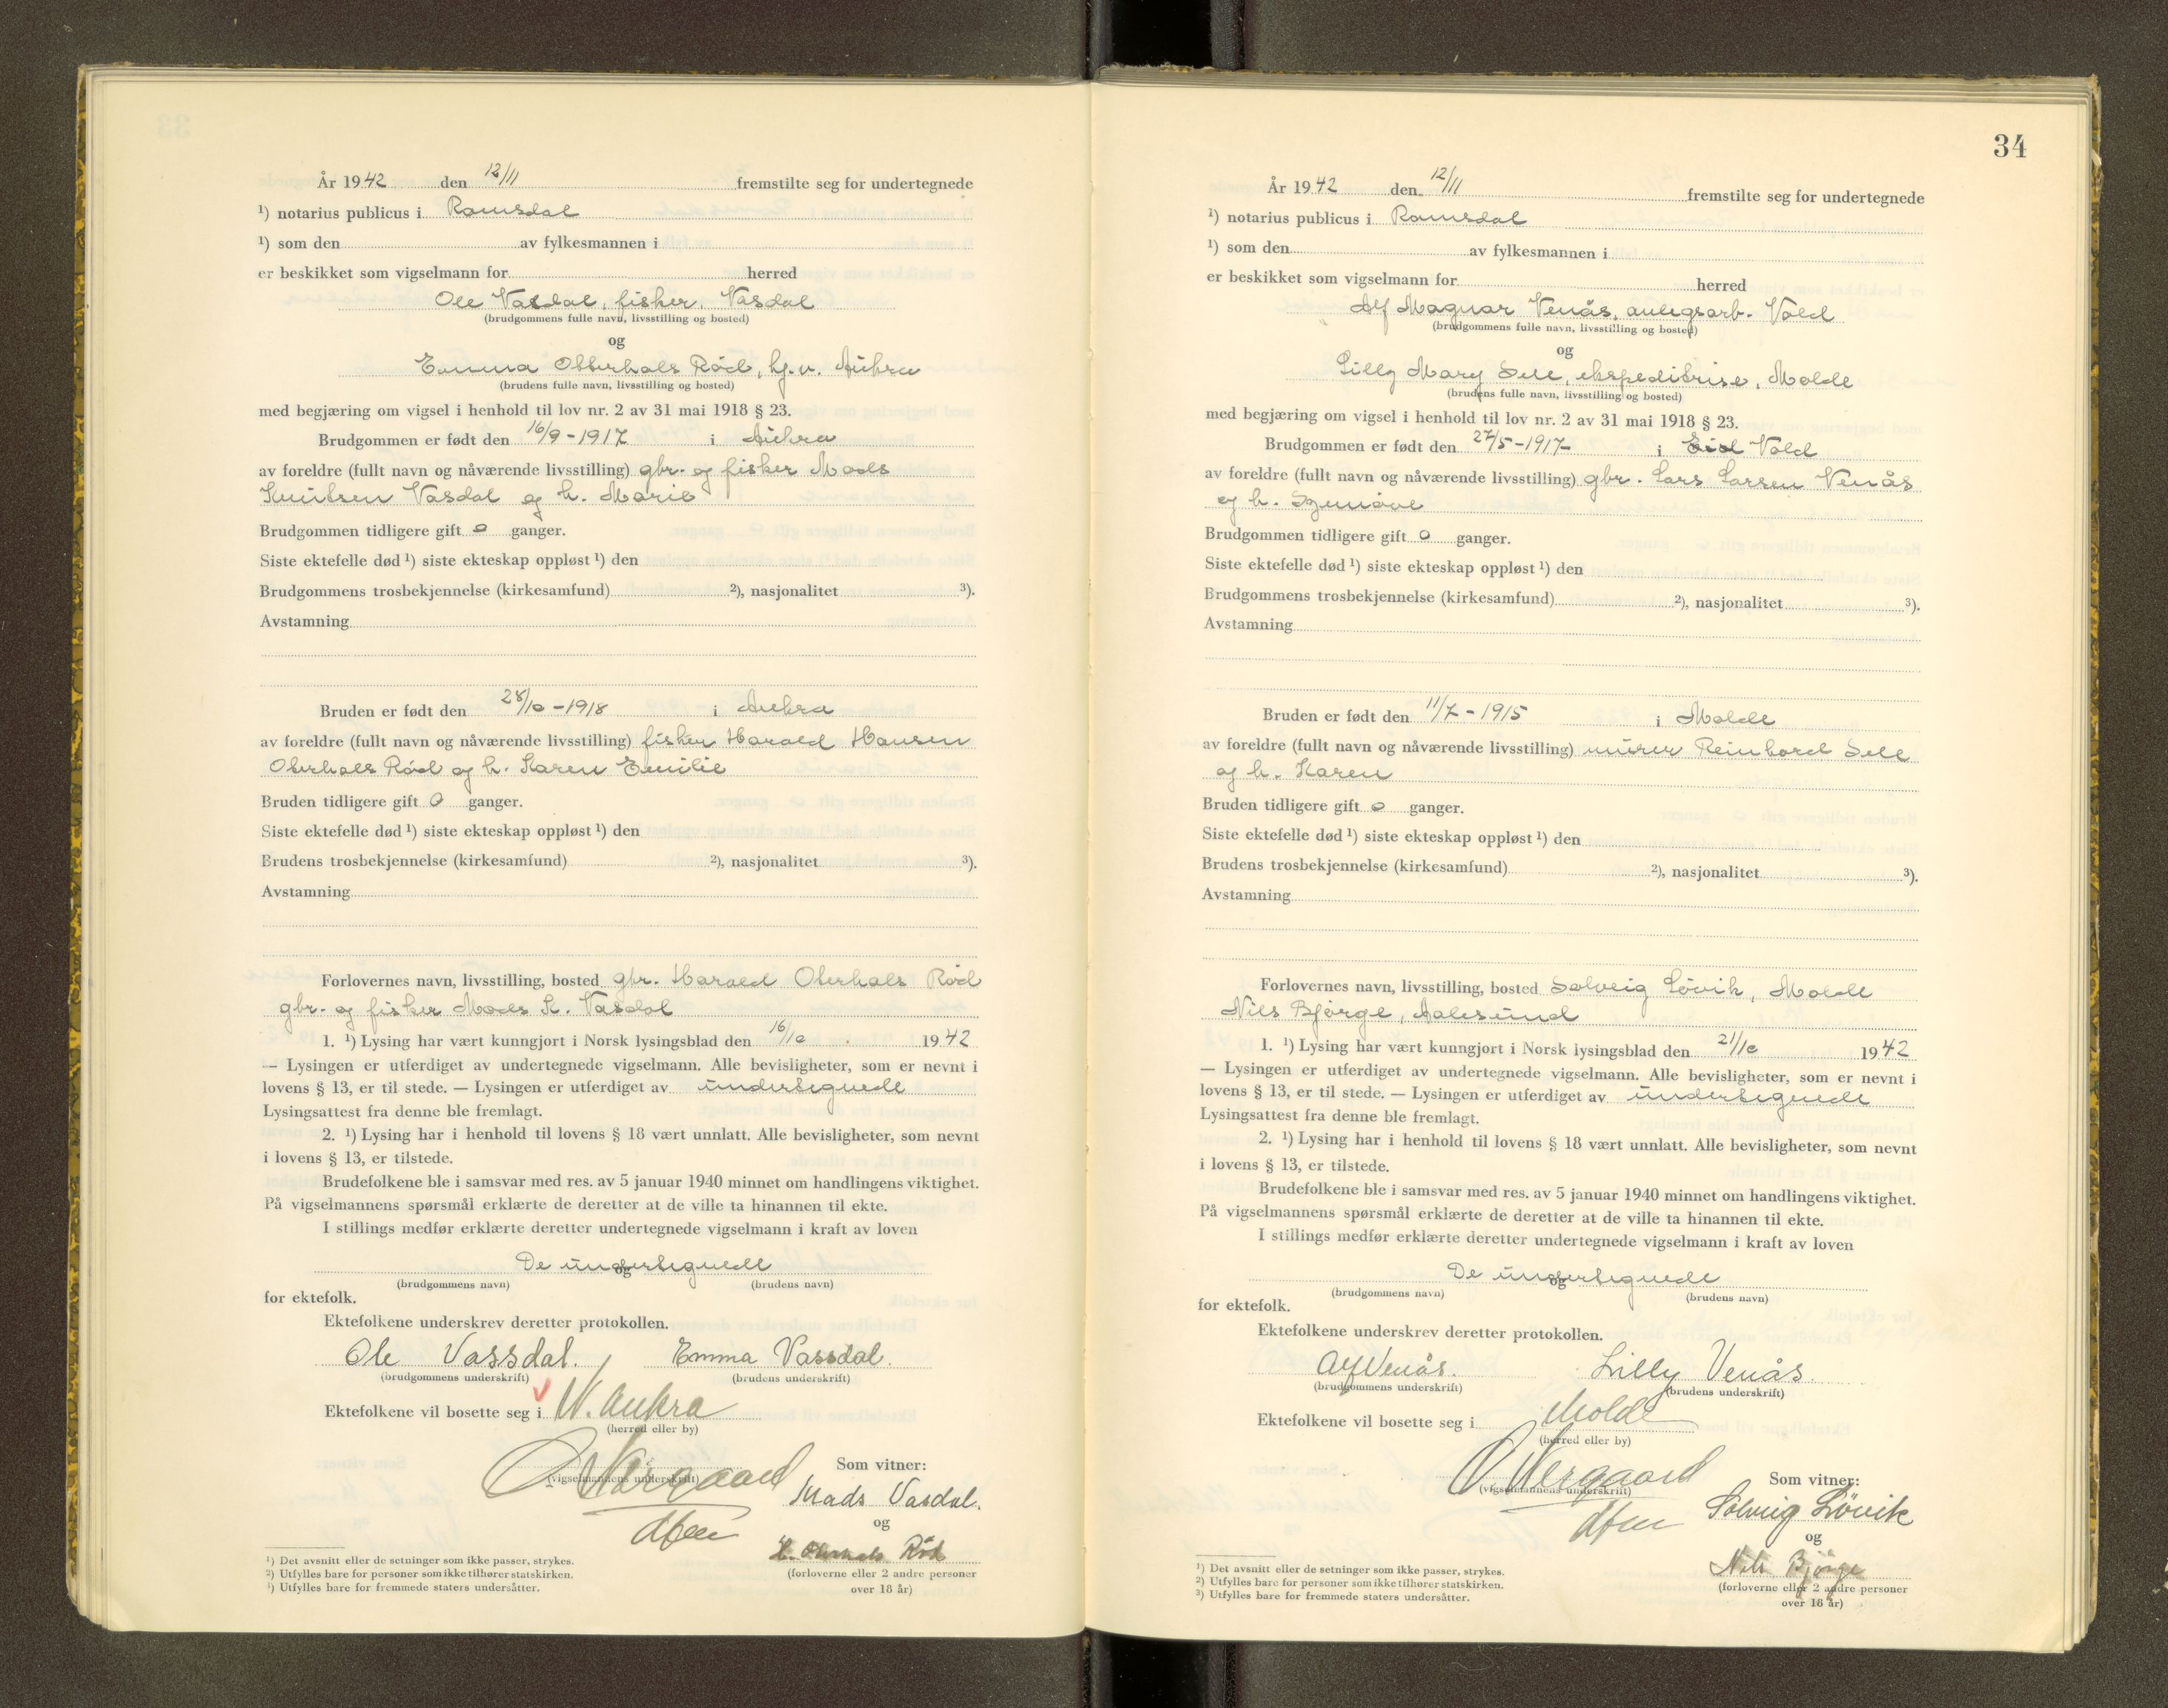 År 1942 den 12/11 fremstilte seg for undertegnede
¹) notarius publicus i Romsdal
¹) som den av fylkesmannen i
er beskikket som vigselmann for herred
Ole Vasdal, fisker, Vasdal
(brudgommens fulle navn, livsstilling og bosted)
og
Emma Otterhals Rød, hj.v. Aukra
(brudens fulle navn, livsstilling og bosted)
med begjæring om vigsel i henhold til lov nr. 2 av 31 mai 1918 § 23.
Brudgommen er født den 16/9-1917 i Aukra
av foreldre (fullt navn og nåværende livsstilling) gbr. og fisker Mads
Knutsen Vasdal og h. Marie
Brudgommen tidligere gift 0 ganger.
Siste ektefelle død ¹) siste ekteskap oppløst ¹) den
Brudgommens trosbekjennelse (kirkesamfund) ²), nasjonalitet ³).
Avstamning
Bruden er født den 28/10-1918 i Aukra
av foreldre (fullt navn og nåværende livsstilling) fisker Harald Hansen
Oterhals Rød og h. Karen Emilie
Bruden tidligere gift 0 ganger.
Siste ektefelle død ¹) siste ekteskap oppløst ¹) den
Brudens trosbekjennelse (kirkesamfund) ²), nasjonalitet ³).
Avstamning
Forlovernes navn, livsstilling, bosted gbr. Harald Oterhals Rød
gbr. og fisker Mads K. Vasdal
1. ¹) Lysing har vært kunngjort i Norsk lysingsblad den 16/10 1942
— Lysingen er utferdiget av undertegnede vigselmann. Alle bevisligheter, som er nevnt i
lovens § 13, er til stede. — Lysingen er utferdiget av undertegnede
Lysingsattest fra denne ble fremlagt.
2. ¹) Lysing har i henhold til lovens § 18 vært unnlatt. Alle bevisligheter, som nevnt
i lovens § 13, er tilstede.
Brudefolkene ble i samsvar med res. av 5 januar 1940 minnet om handlingens viktighet.
På vigselmannens spørsmål erklærte de deretter at de ville ta hinannen til ekte.
I stillings medfør erklærte deretter undertegnede vigselmann i kraft av loven
De undertegnede
og
(brudgommens navn) (brudens navn)
for ektefolk.
Ektefolkene underskrev deretter protokollen.
Ole Vassdal. Emma Vassdal.
(brudgommens underskrift) (brudens underskrift)
Ektefolkene vil bosette seg i N. Aukra
(herred eller by)
Som vitner:
(vigselmannens underskrift)
Mads Vasdal.
og
H. Oterhals Rød
(forloverne eller 2 andre personer
over 18 år)
¹) Det avsnitt eller de setninger som ikke passer, strykes.
²) Utfylles bare for personer som ikke tilhører statskirken.
³) Utfylles bare for fremmede staters undersåtter.
34
År 1942 den 12/11 fremstilte seg for undertegnede
¹) notarius publicus i Romsdal
¹) som den av fylkesmannen i
er beskikket som vigselmann for herred
Alf Magnar Venås, anlegsarb. Vold
(brudgommens fulle navn, livsstilling og bosted)
og
Lilly Mary Sele, ekspeditrise, Molde
(brudens fulle navn, livsstilling og bosted)
med begjæring om vigsel i henhold til lov nr. 2 av 31 mai 1918 § 23.
Brudgommen er født den 27/5-1917 i Eid Vold
av foreldre (fullt navn og nåværende livsstilling) gbr. Lars Larsen Venås
og h. Synnøve
Brudgommen tidligere gift 0 ganger.
Siste ektefelle død ¹) siste ekteskap oppløst ¹) den
Brudgommens trosbekjennelse (kirkesamfund) ²), nasjonalitet ³).
Avstamning
Bruden er født den 11/7-1915 i Molde
av foreldre (fullt navn og nåværende livsstilling) murer Reinhard Sele
og h. Karen
Bruden tidligere gift 0 ganger.
Siste ektefelle død ¹) siste ekteskap oppløst ¹) den
Brudens trosbekjennelse (kirkesamfund) ²), nasjonalitet ³).
Avstamning
Forlovernes navn, livsstilling, bosted Solveig Løvik, Molde
Nils Bjørge, Aalesund
1. ¹) Lysing har vært kunngjort i Norsk lysingsblad den 21/10 1942
— Lysingen er utferdiget av undertegnede vigselmann. Alle bevisligheter, som er nevnt i
lovens § 13, er til stede. — Lysingen er utferdiget av undertegnede
Lysingsattest fra denne ble fremlagt.
2. ¹) Lysing har i henhold til lovens § 18 vært unnlatt. Alle bevisligheter, som nevnt
i lovens § 13, er tilstede.
Brudefolkene ble i samsvar med res. av 5 januar 1940 minnet om handlingens viktighet.
På vigselmannens spørsmål erklærte de deretter at de ville ta hinannen til ekte.
I stillings medfør erklærte deretter undertegnede vigselmann i kraft av loven
De undertegnede
og
(brudgommens navn) (brudens navn)
for ektefolk.
Ektefolkene underskrev deretter protokollen.
Alf Venås. Lilly Venås.
(brudgommens underskrift) (brudens underskrift)
Ektefolkene vil bosette seg i Molde
(herred eller by)
Som vitner:
(vigselmannens underskrift)
Solveig Løvik
og
Nils Bjørge
(forloverne eller 2 andre personer
over 18 år)
¹) Det avsnitt eller de setninger som ikke passer, strykes.
²) Utfylles bare for personer som ikke tilhører statskirken.
³) Utfylles bare for fremmede staters undersåtter.